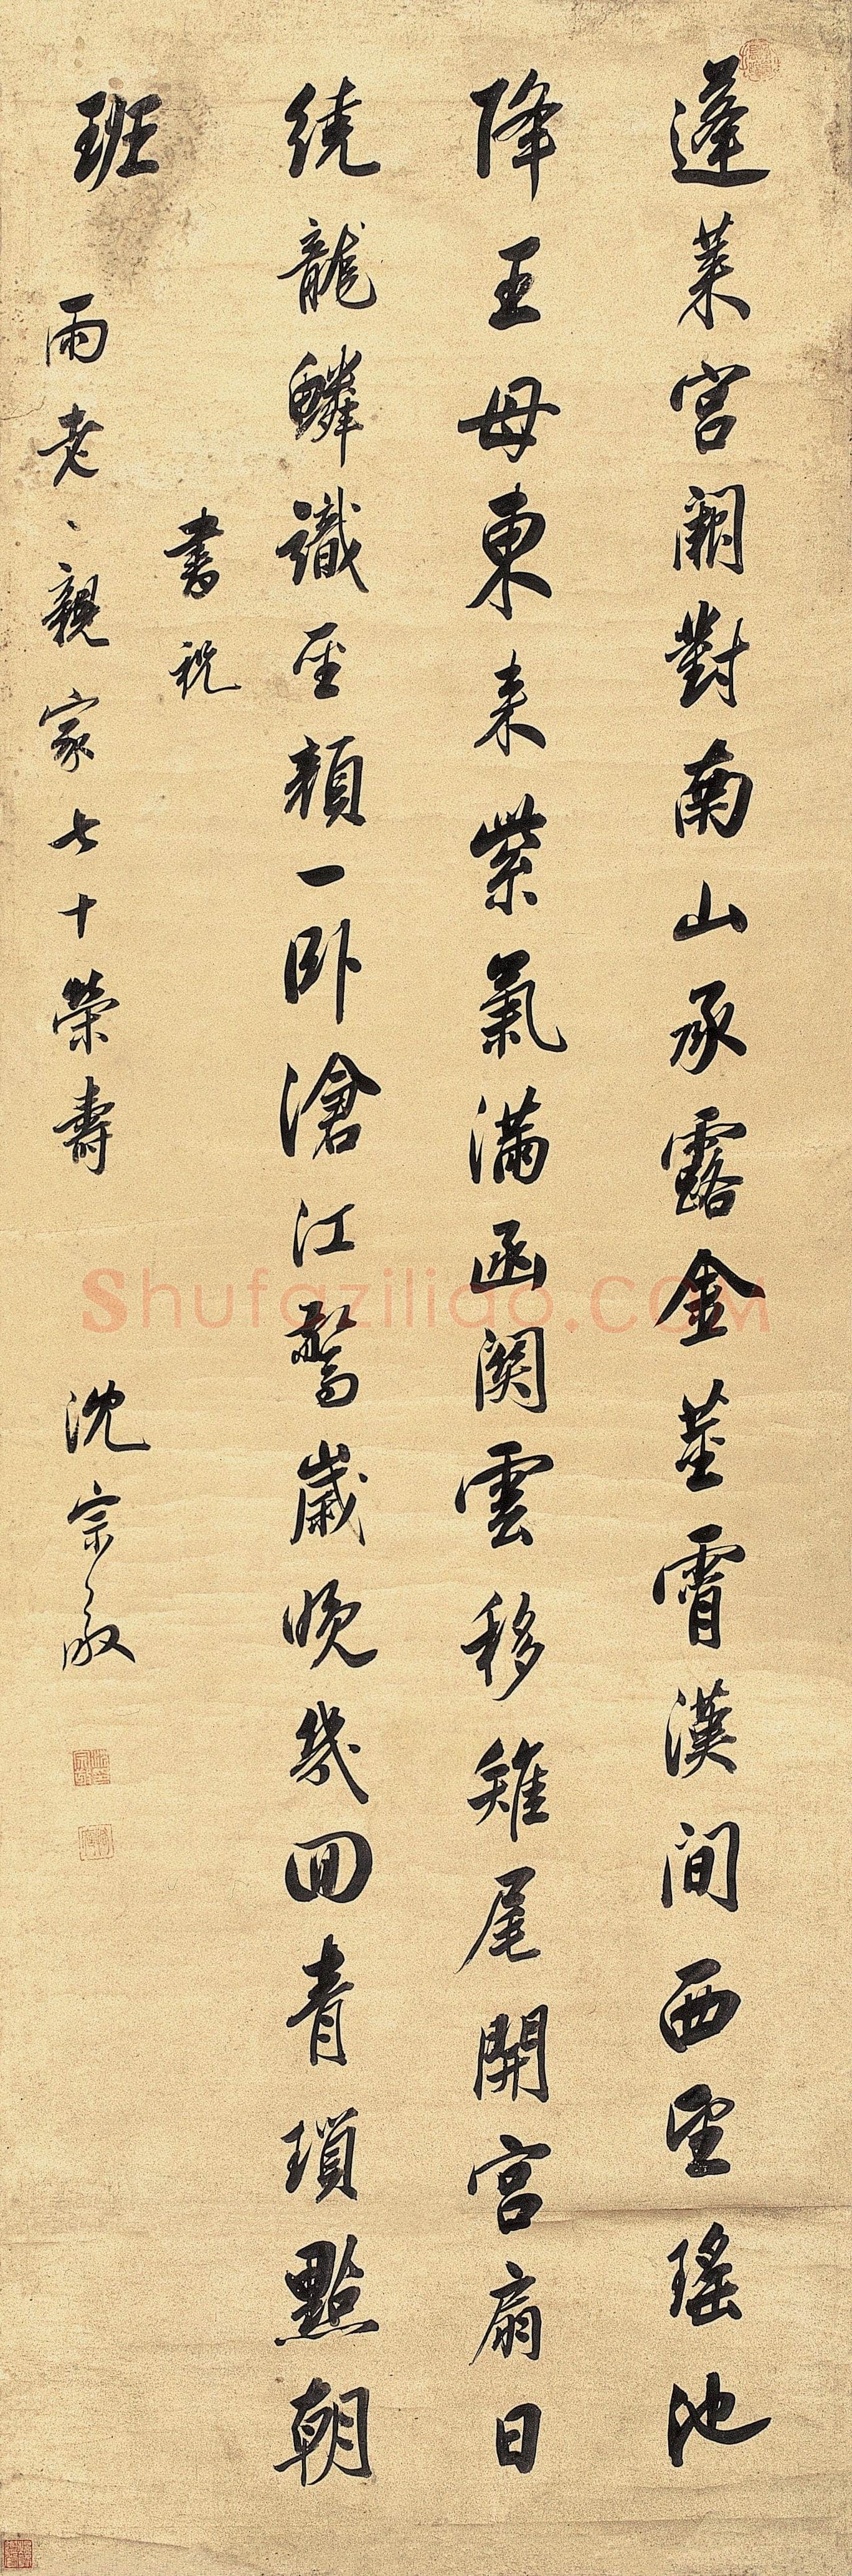 蓬萊宮闕對南山承露金莖霄漢間西望瑤池
降王母東来紫氣滿函関雲移雉尾開宮扇日
繞龍鱗識聖顏一卧滄江驚歲晚幾回青瑣點朝
班
書祝
雨老、親家七十榮壽
沈宗敬
Shufaziliao.COM